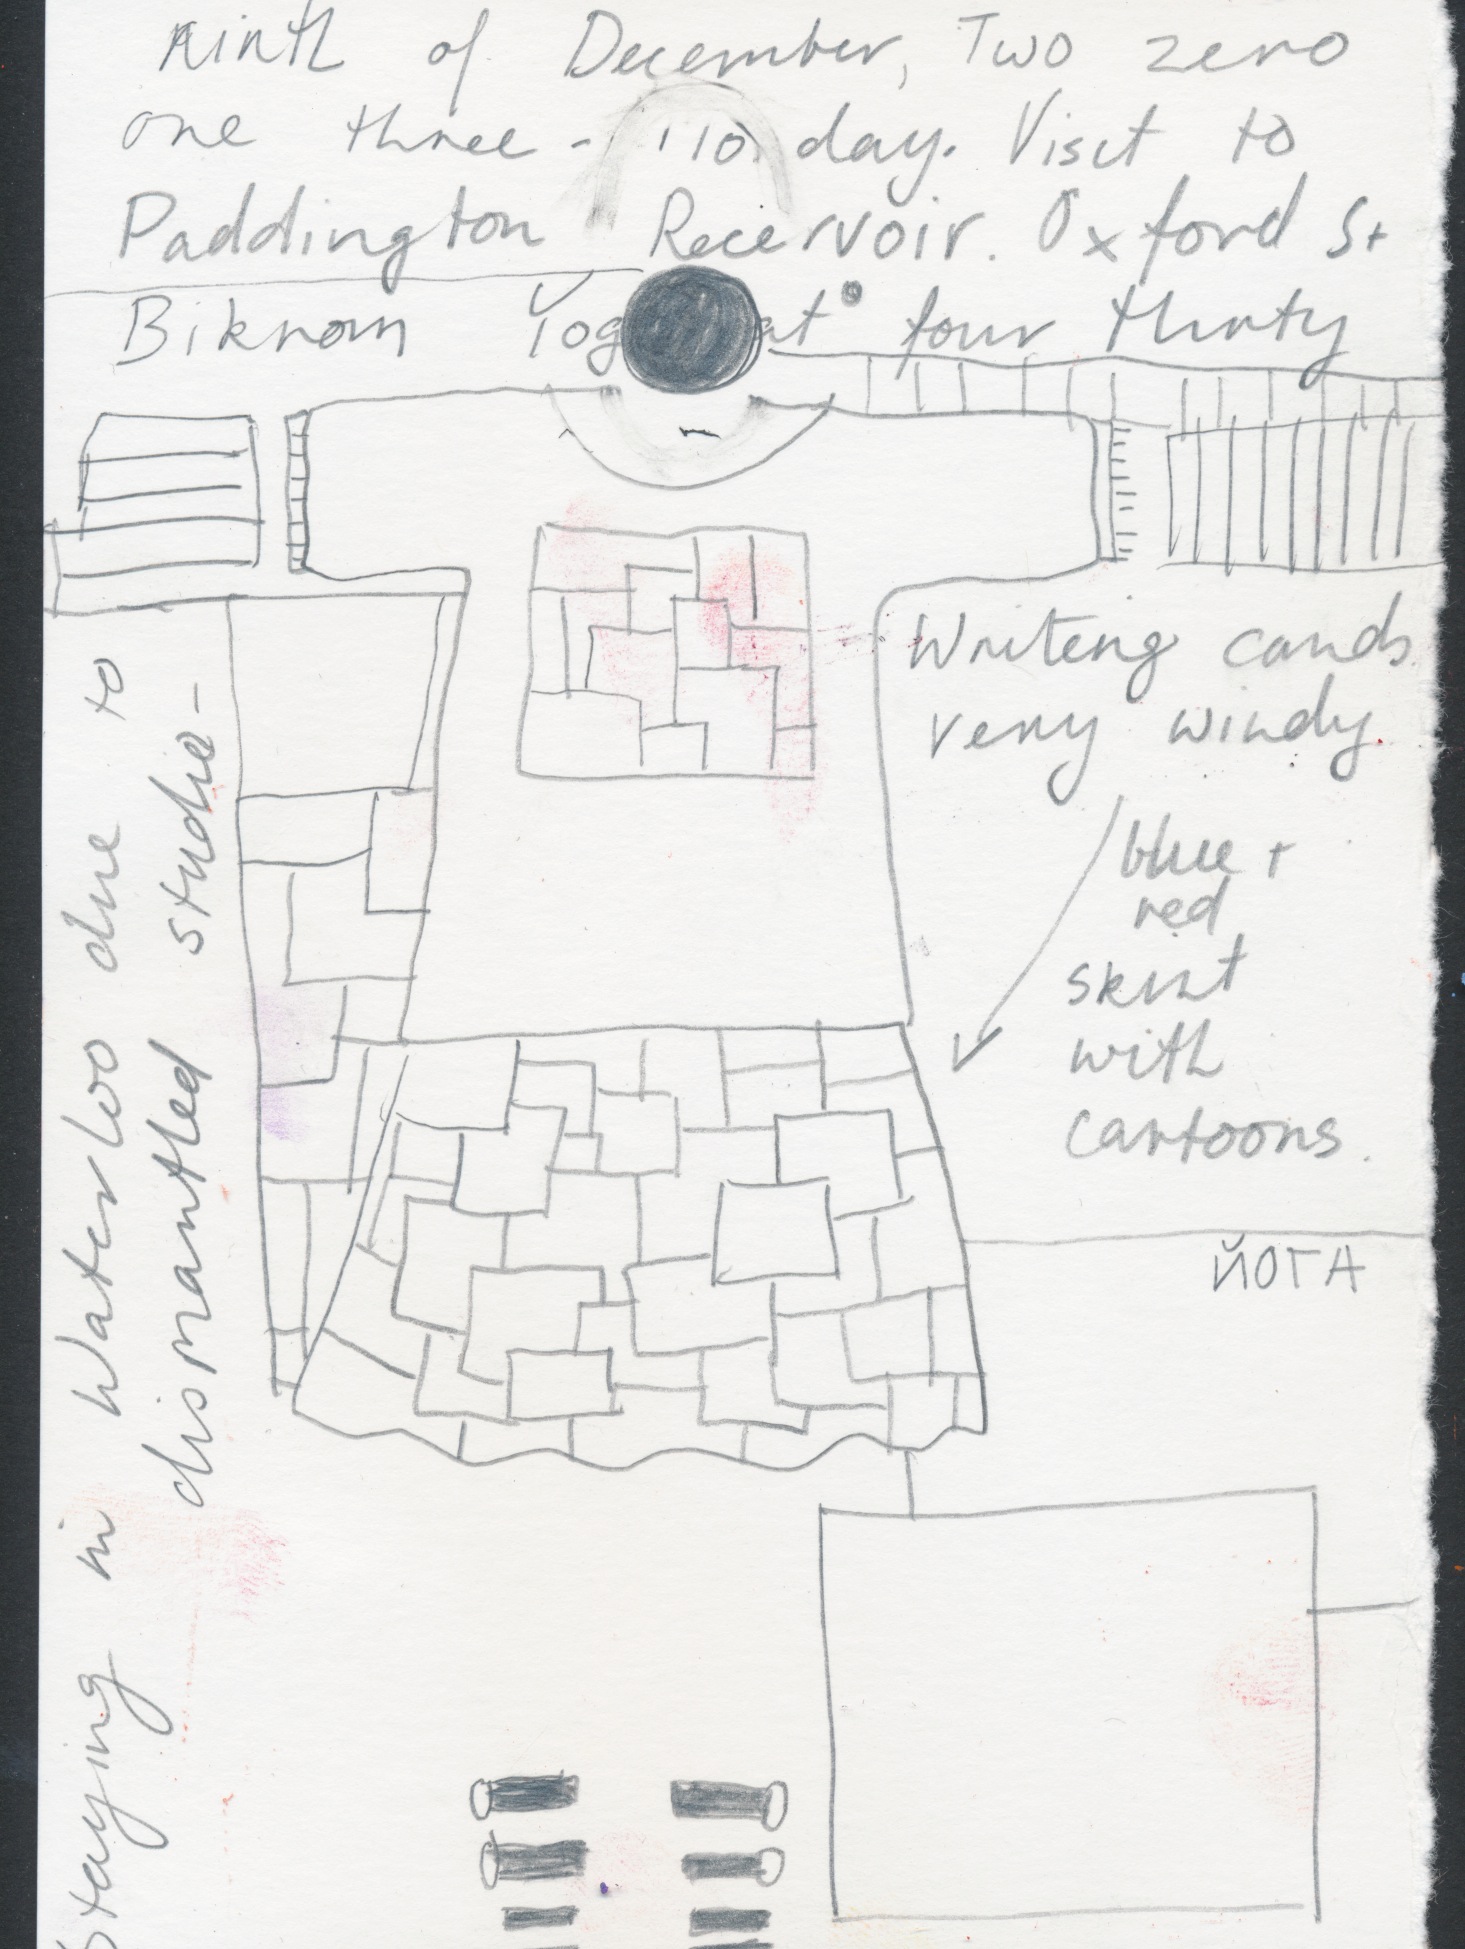 Ninth of December, Two zero
one three - day. Visit to
Paddington Recervoir. Oxford St
Biknam Yog at four thirty
Writing cards
very windy
blue +
red
skirt
with
cartoons.
ЙОГА
Staying in Waterloo due to
dismantled studio-